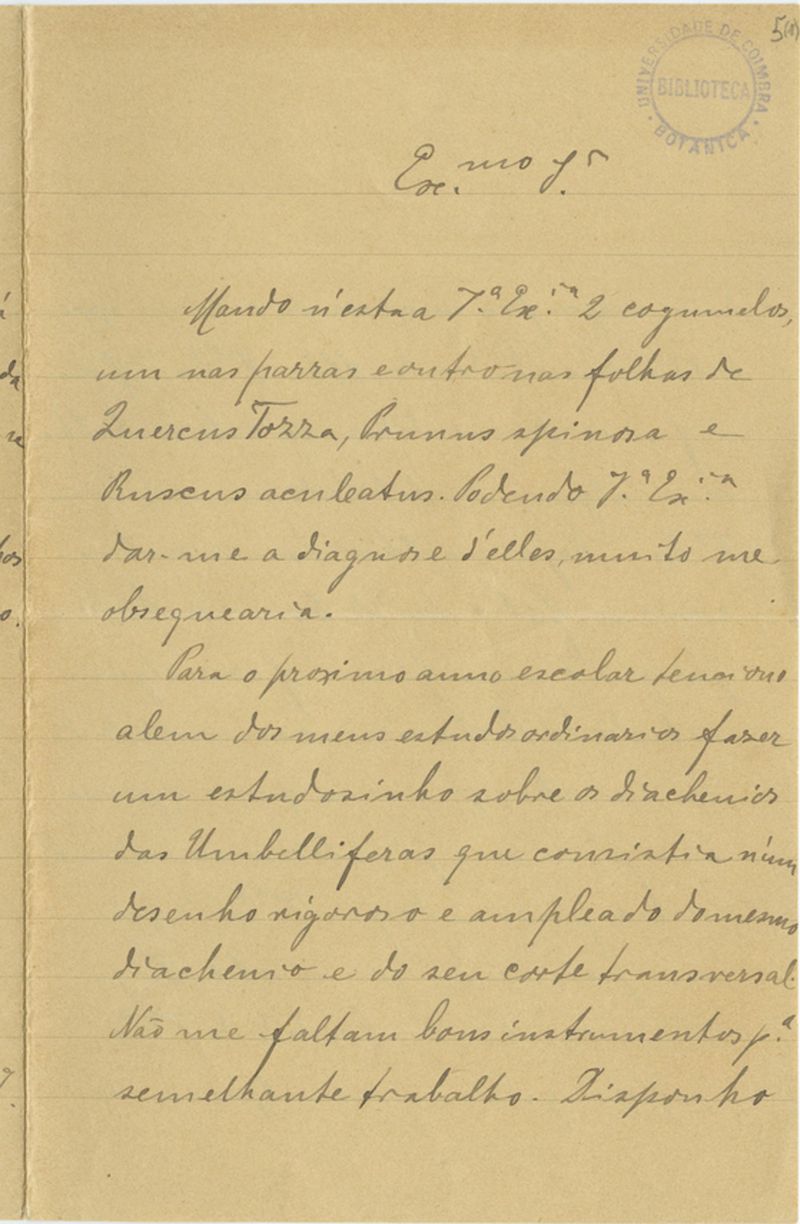 5(1)
UNIVERSIDADE DE COIMBRA
BIBLIOTECA
BOTANICA
Ex.mo Sr
Mando n'esta a V.ª Ex.cia 2 cogumelos,
um nas parras e outro nas folhas de
Quercus Tozza, Prunus spinosa e
Ruscus aculeatus. Podendo V.ª Ex.cia
dar-me a diagnose d'elles, muito me
obsequearia.
Para o proximo anno escolar tenciono
alem dos meus estudos ordinarios fazer
um estudosinho sobre os diachenios
das Umbelliferas que consistia n'um
desenho rigoroso e ampleado do mesmo
diachenio e do seu corte transversal.
Não me faltam bons instrumentos p.ª
semelhante trabalho. Disponho